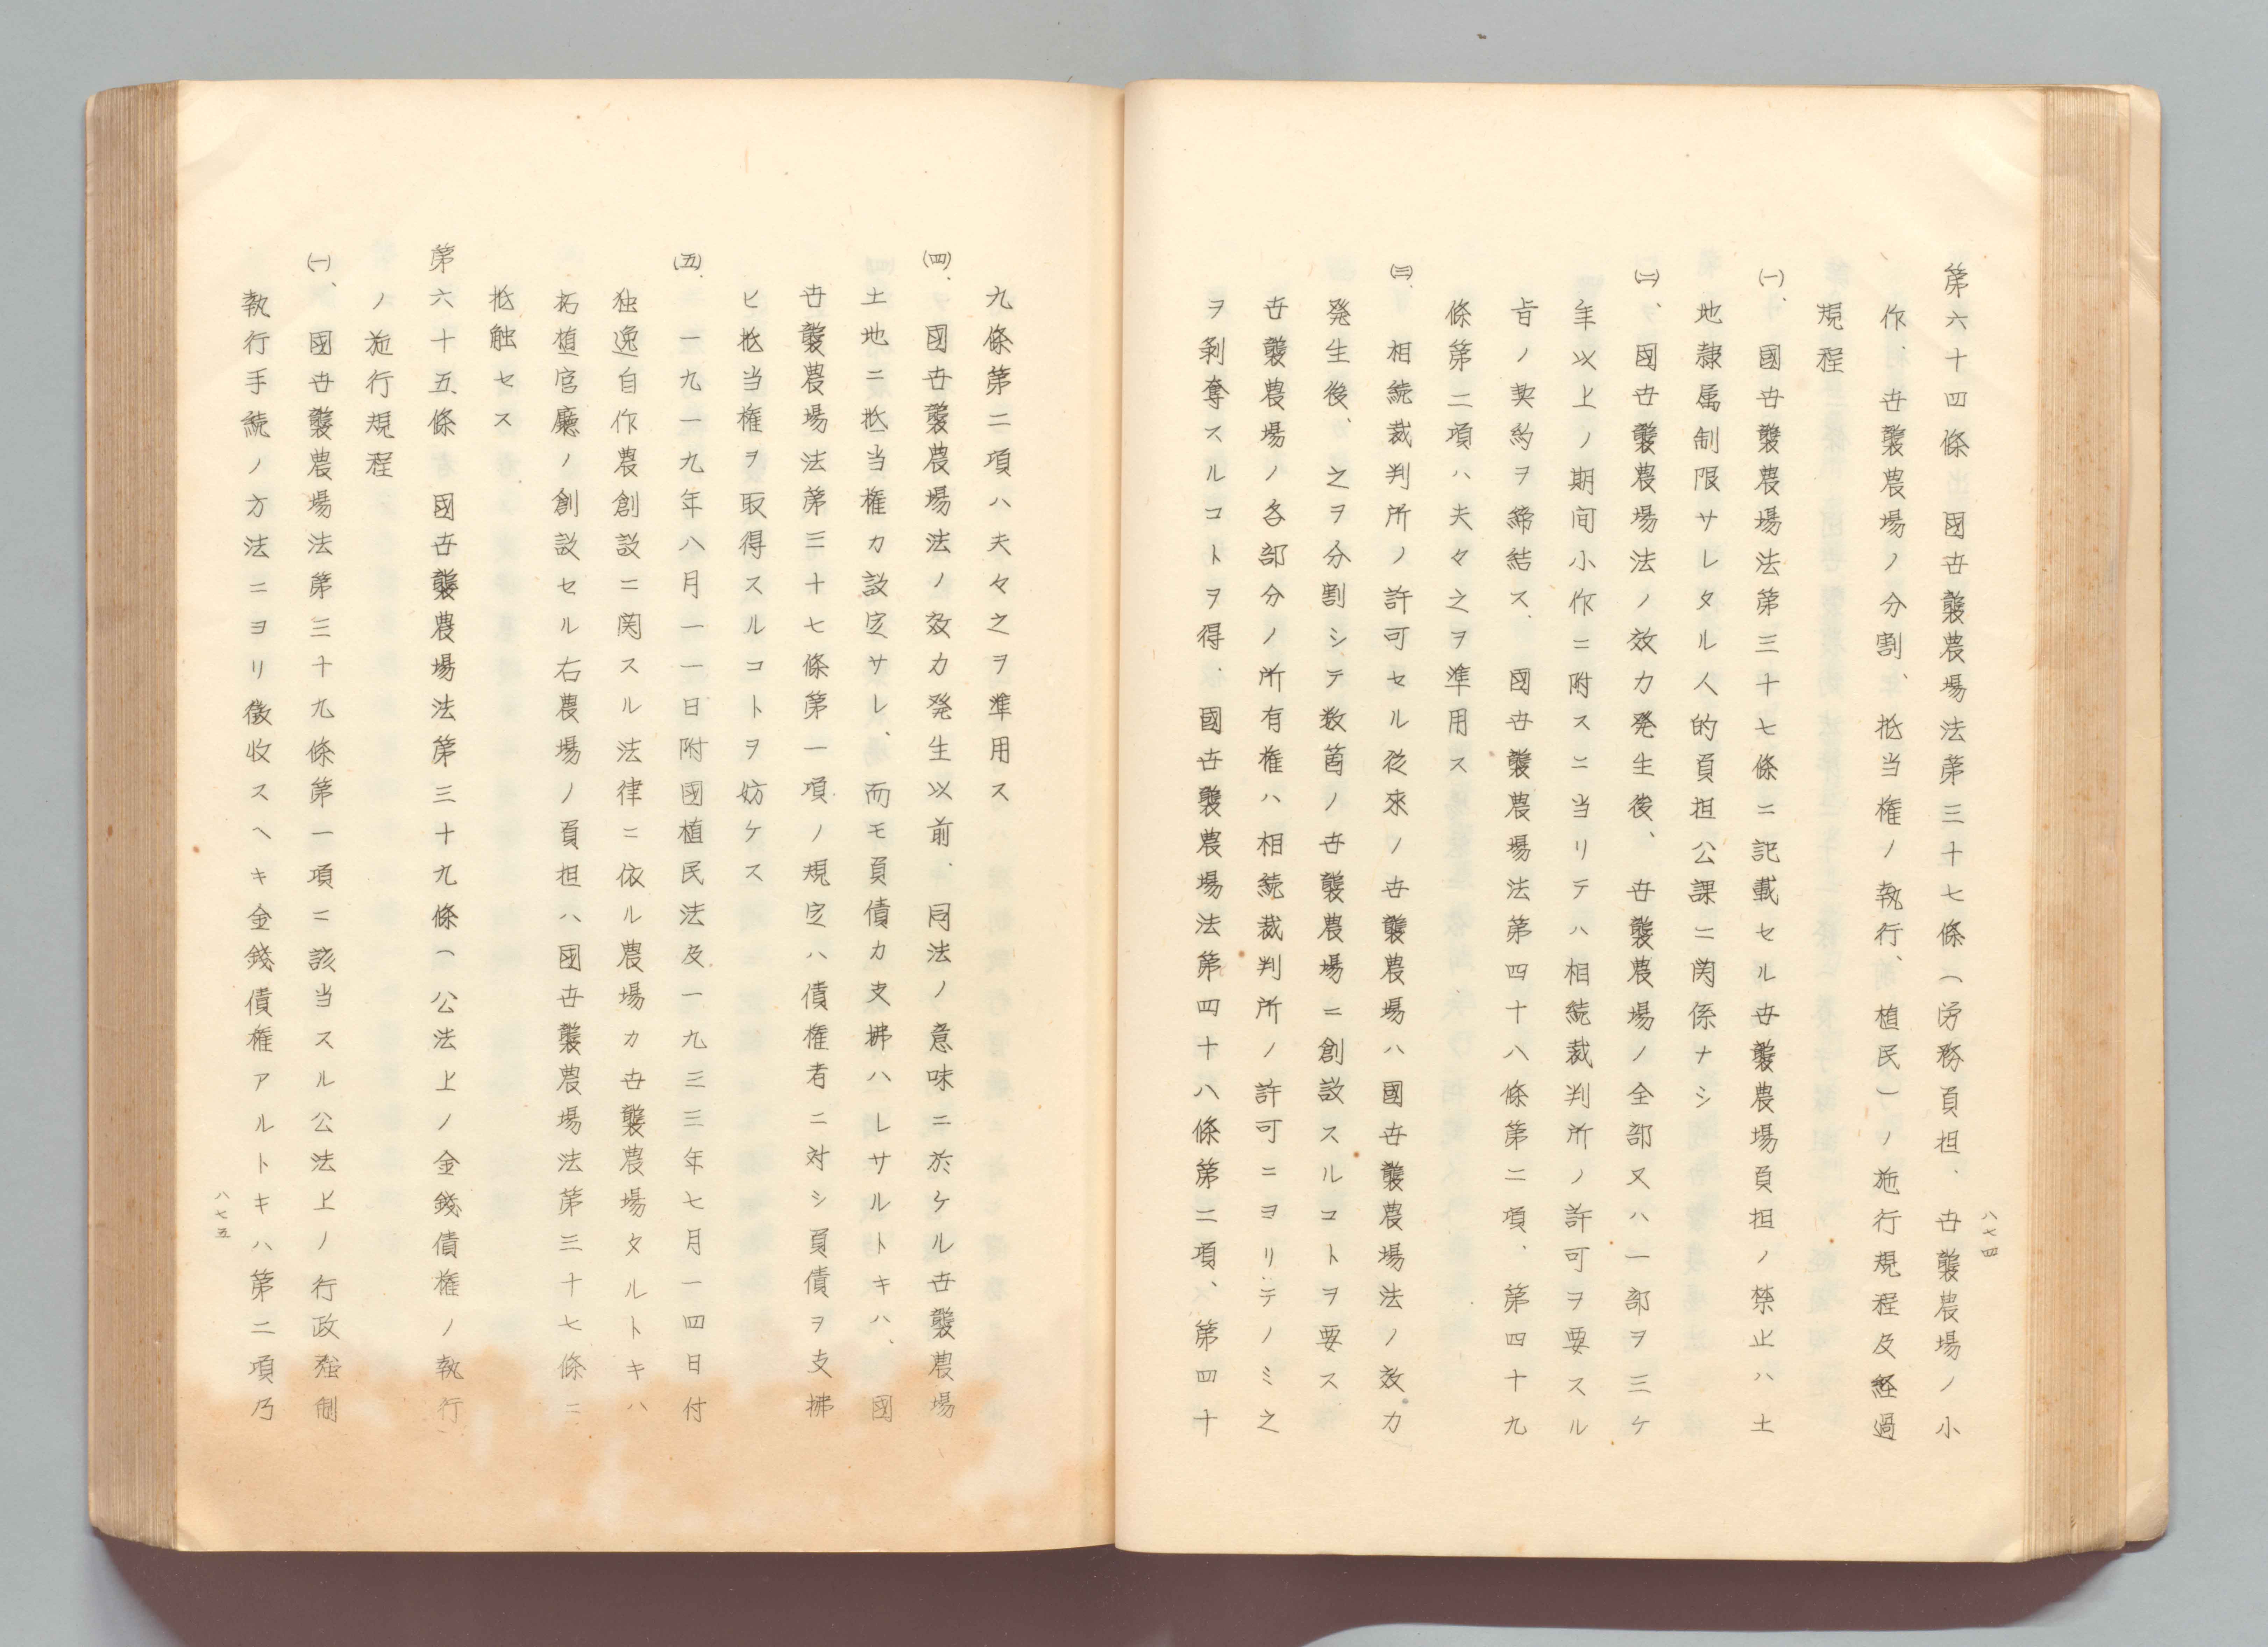 第六十四條　國世襲農場法第三十七條（労務負担、世襲農場ノ小
作、世襲農場ノ分割、抵当権ノ執行、植民）ノ施行規程及経過
規程
(一)、國世襲農場法第三十七條ニ記載セル世襲農場負担ノ禁止ハ土
地隷属制限サレタル人的負担公課ニ関係ナシ
(二)、國世襲農場法ノ效力発生後、世襲農場ノ全部又ハ一部ヲ三ケ
年以上ノ期间小作ニ附スニ当リテハ相続裁判所ノ許可ヲ要スル
旨ノ契約ヲ締結ス、國世襲農場法第四十八條第二項、第四十九
條第二項ハ夫々之ヲ準用ス
(三)、相続裁判所ノ許可セル従來ノ世襲農場ハ國世襲農場法ノ效力
発生後、之ヲ分割シテ数箇ノ世襲農場ニ創設スルコトヲ要ス
世襲農場ノ各部分ノ所有権ハ相続裁判所ノ許可ニヨリテノミ之
ヲ剥奪スルコトヲ得、國世襲農場法第四十八條第二項、第四十
八七四
九條第二項ハ夫々之ヲ準用ス
(四)、國世襲農場法ノ效力発生以前、同法ノ意味ニ於ケル世襲農場
土地ニ抵当権カ設定サレ、而モ負債カ支拂ハレサルトキハ、國
世襲農場法第三十七條第一項ノ規定ハ債権者ニ対シ負債ヲ支拂
ヒ抵当権ヲ取得スルコトヲ妨ケス
(五)、一九一九年八月一一日附國植民法及一九三三年七月一四日付
独逸自作農創設ニ関スル法律ニ依ル農場カ世襲農場タルトキハ
拓植官廳ノ創設セル右農場ノ負担ハ國世襲農場法第三十七條ニ
抵触セス
第六十五條　國世襲農場法第三十九條（公法上ノ金錢債権ノ執行）
ノ施行規程
(一)、國世襲農場法第三十九條第一項ニ該当スル公法上ノ行政強制
執行手続ノ方法ニヨリ徴收スヘキ金錢債権アルトキハ第二項乃
八七五